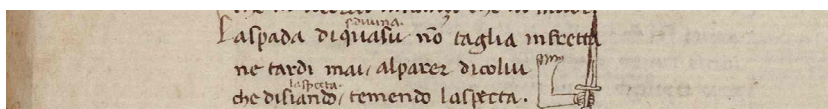 s. diuina.
Laspada diquasu nõ taglia infretta
ne tardi mai / alparer dicolui
laspecta.
che disiando / temendo laspecta.